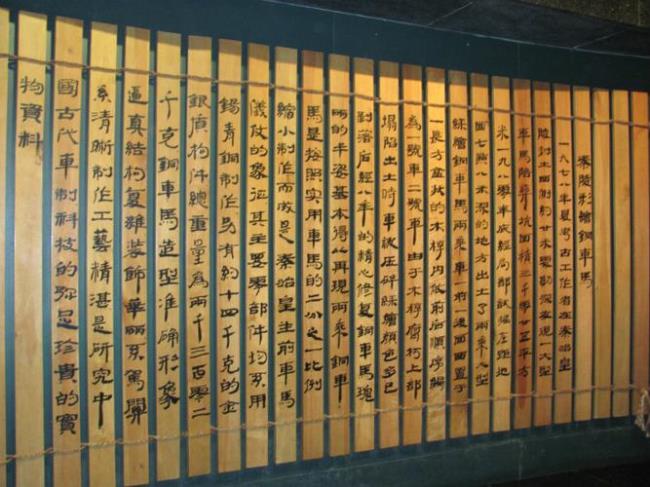 秦陵彩繪銅車馬
一九七八年夏考古工作者在秦始皇
陵封土西側約廿米處勘探發現一大型
車馬陪葬坑面積三千零廿五平方
米一九八零年底經局部試掘在距地
面七點八米深的地方出土了兩乘大型
綵繪銅車馬兩乘車一前一後面西置于
一長方盒狀的木槨内依前后順序編
為號車二號車由于木槨腐朽上部
塌陷出土時車被压碎綵繪顏色多已
剝落后經八年的精心修复銅車馬瑰
丽的丰姿基本得以再現兩乘銅車
馬是按照实用車馬的二分之一比例
縮小制作而成是秦始皇生前車馬
儀仗的象征其主要零部件均系用
錫青銅制作另有約十四千克的金
銀质构件總重量為兩千三百零二
千克銅車馬造型准确形象
逼真結构复雜裝飾華丽系駕關
系清晰制作工藝精湛是研究中
國古代車制科技的弥足珍貴的實
物資料